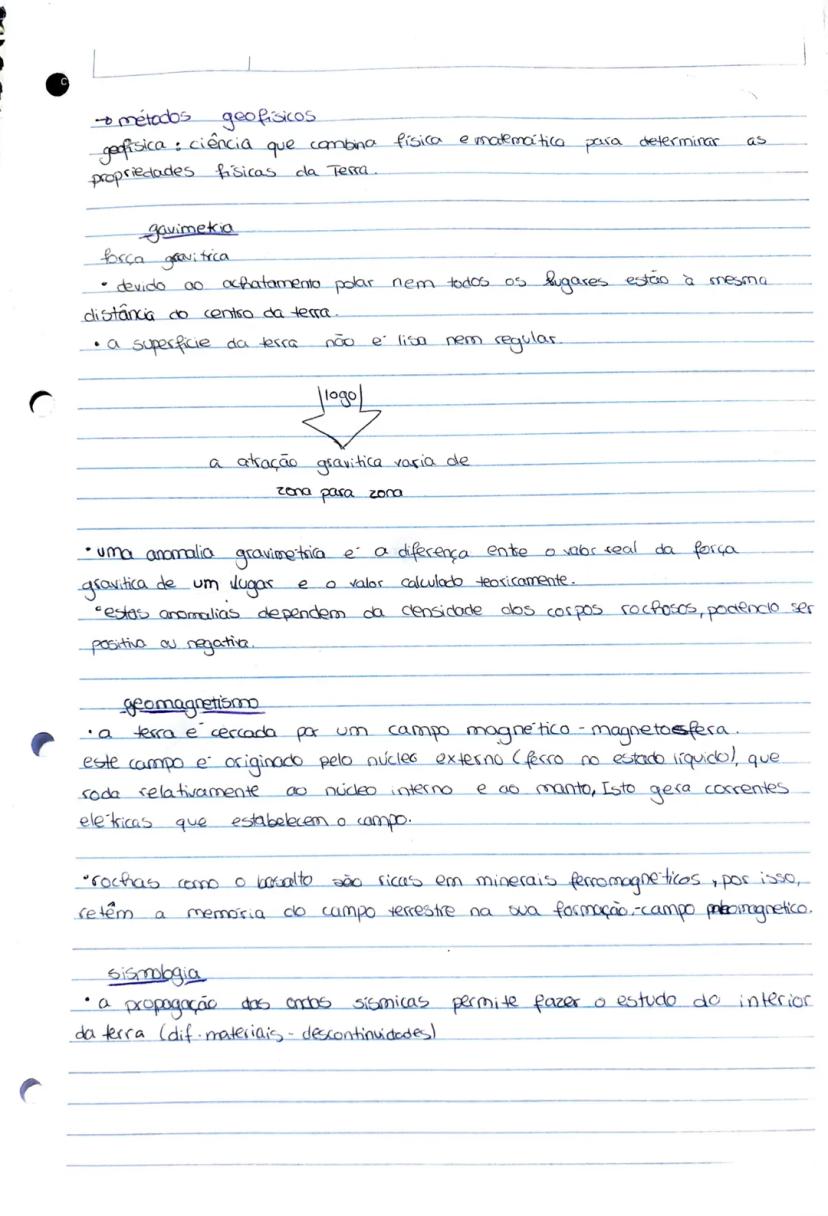 → métodos geofísicos
geofísica : ciência que combina física e matemática para determinar as
propriedades físicas da Terra.
gavimetria
força gravítica
• devido ao achatamento polar nem todos os lugares estão à mesma
distância do centro da terra.
• a superfície da terra não é lisa nem regular.
logo
a atração gravítica varia de
zona para zona
• uma anomalia gravimétrica é a diferença entre o valor real da força
gravítica de um lugar e o valor calculado teoricamente.
• estas anomalias dependem da densidade dos corpos rochosos, podendo ser
positiva ou negativa.
geomagnetismo
• a terra é cercada por um campo magnético - magnetosfera.
este campo é originado pelo núcleo externo (ferro no estado líquido), que
roda relativamente ao núcleo interno e ao manto, Isto gera correntes
elétricas que estabelecem o campo.
• rochas como o basalto são ricas em minerais ferromagnéticos, por isso,
retêm a memória do campo terrestre na sua formação.-campo paleomagnetico.
sismologia
• a propagação das ondas sísmicas permite fazer o estudo do interior
da terra (dif. materiais - descontinuidades)